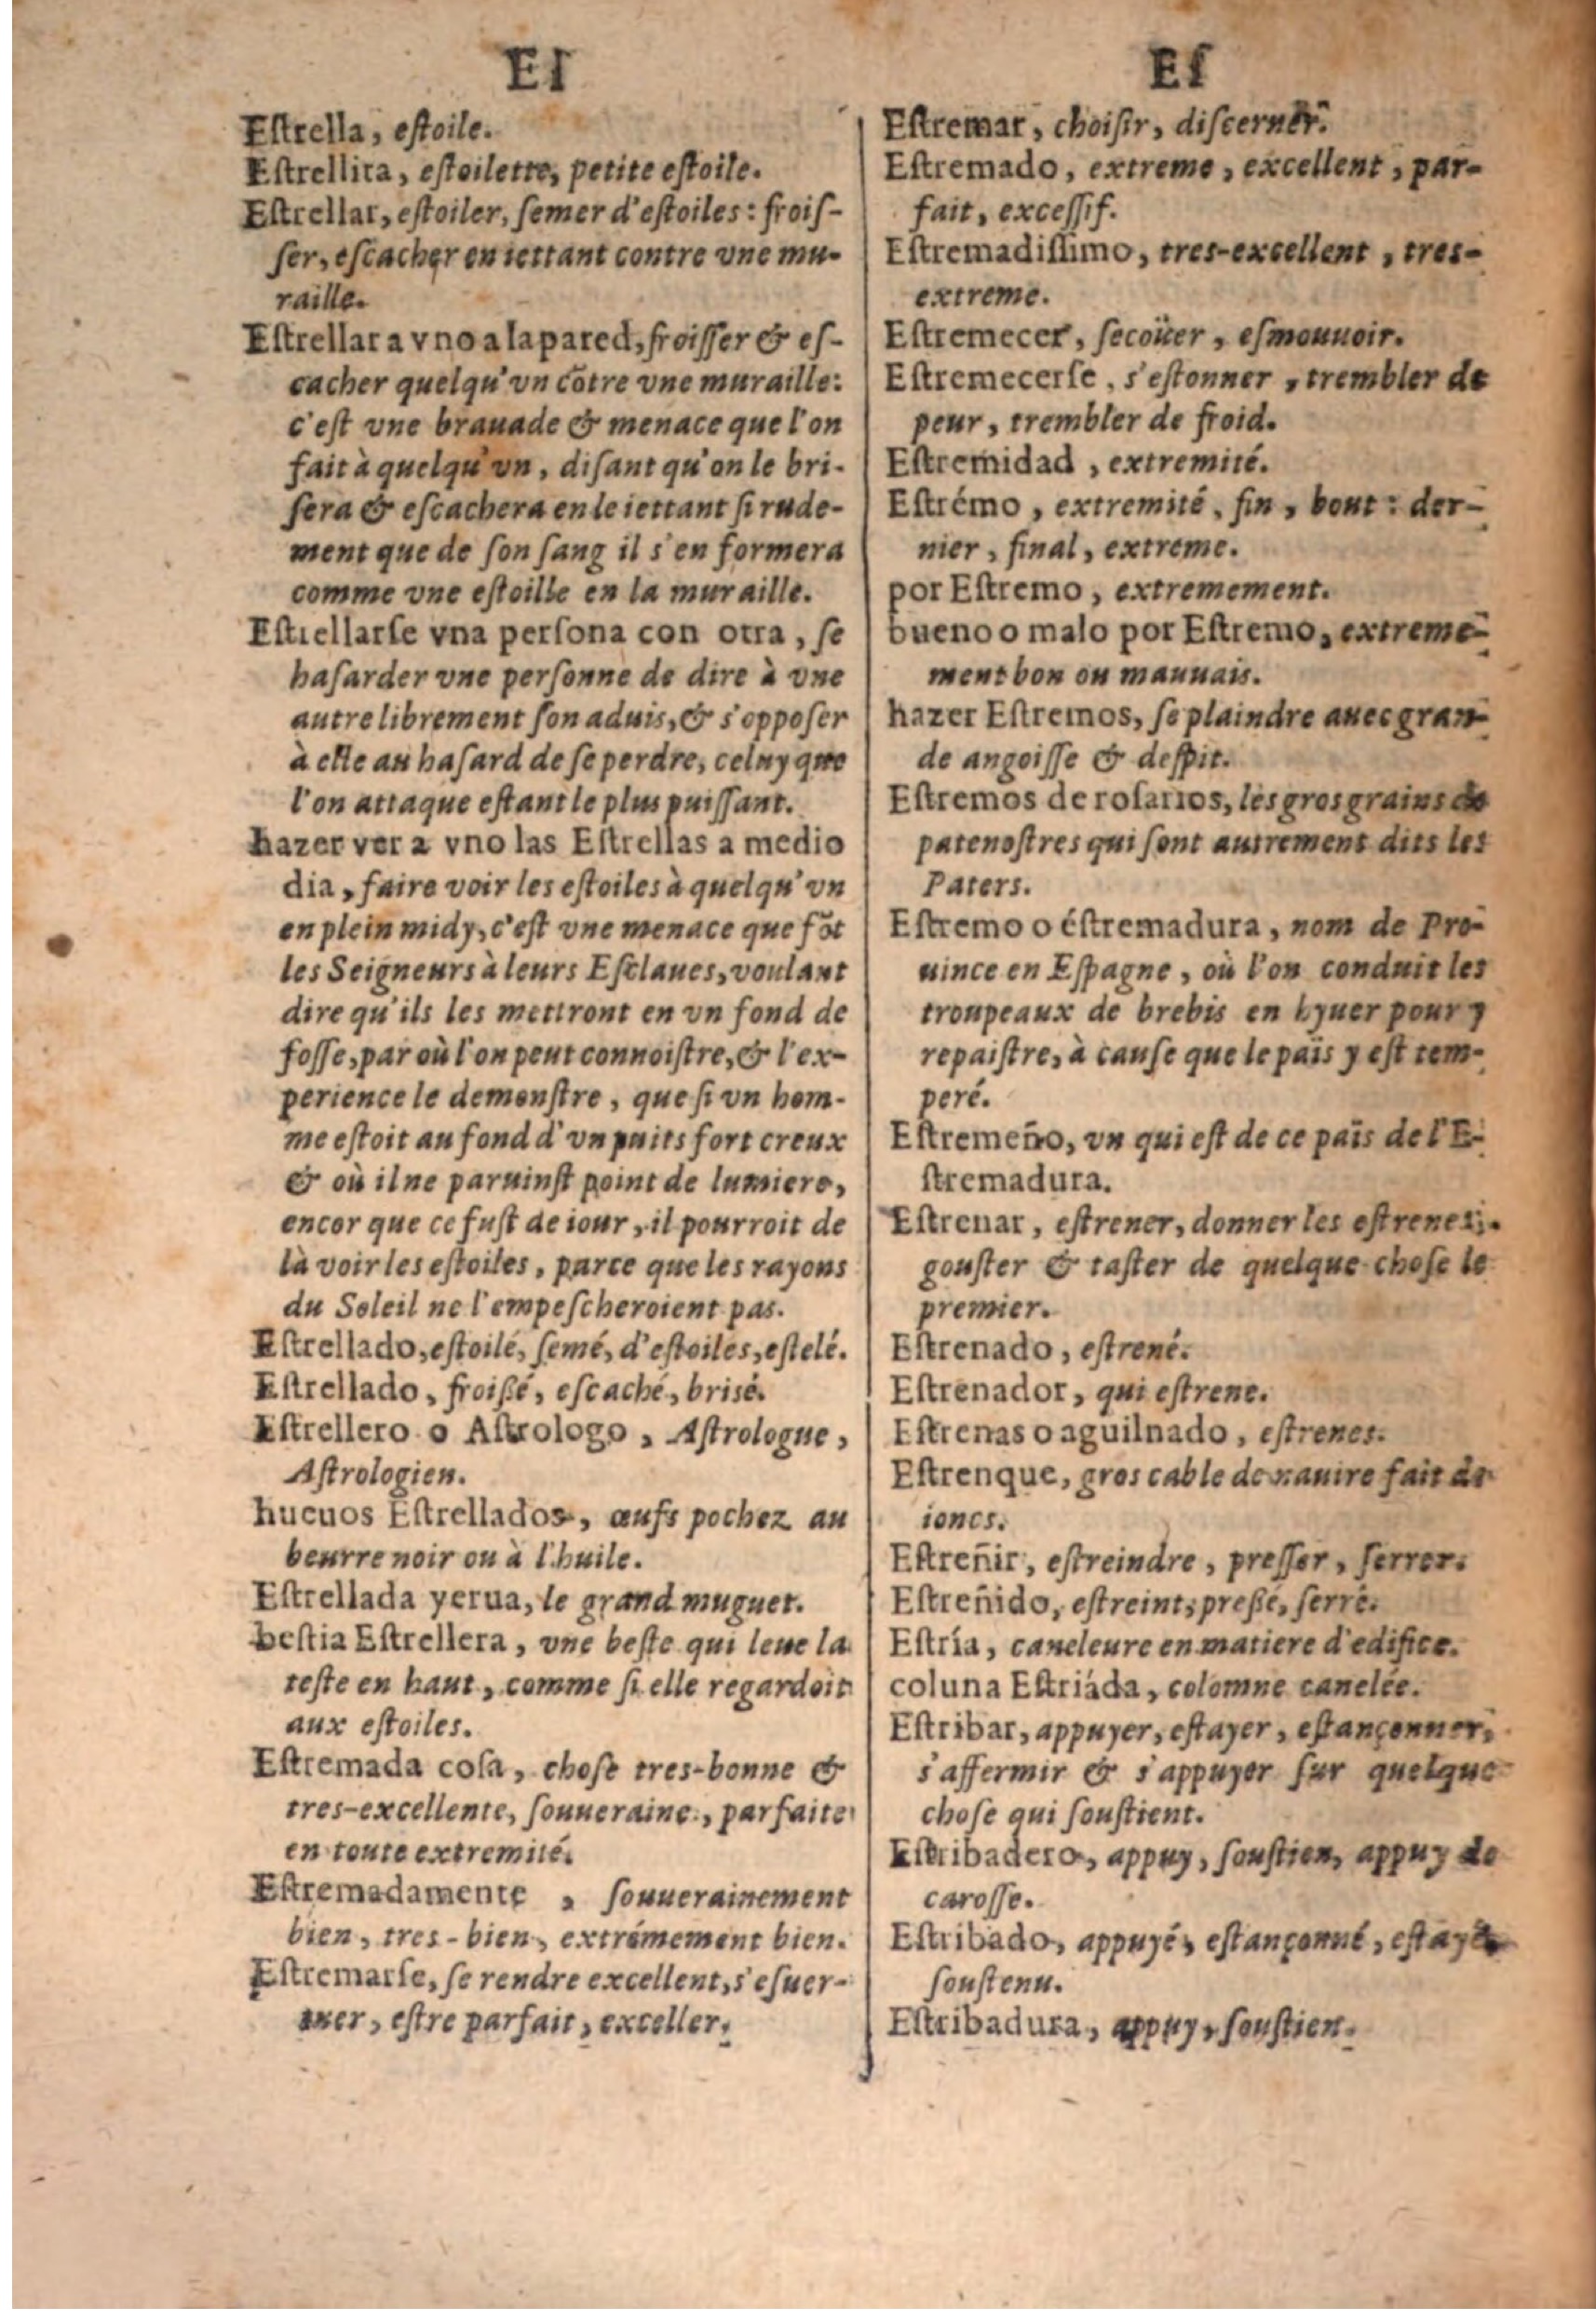 Eſ
Eſtrella, eſtoile.
Eſtrellita, eſtoilette, petite eſtoile.
Eſtrellar, eſtoiler, ſemer d'eſtoiles : froiſ-
ſer, eſcacher en iettant contre vne mu-
raille.
Eſtrellar a vno a la pared, froiſſer & eſ-
cacher quelqu'vn cõtre vne muraille:
c'eſt vne brauade & menace que l'on
fait à quelqu'vn, diſant qu'on le bri-
ſera & eſcachera en le iettant ſi rude-
ment que de ſon ſang il s'en formera
comme vne eſtoille en la muraille.
Eſtrellarſe vna perſona con otra, ſe
haſarder vne perſonne de dire à vne
autre librement ſon aduis, & s'oppoſer
à elle au haſard de ſe perdre, celuy que
l'on attaque eſtant le plus puiſſant.
hazer ver a vno las Eſtrellas a medio
dia, faire voir les eſtoiles à quelqu'vn
en plein midy, c'eſt vne menace que fõt
les Seigneurs à leurs Eſclaues, voulant
dire qu'ils les mettront en vn fond de
foſſe, par où l'on peut connoiſtre, & l'ex-
perience le demonſtre, que ſi vn hom-
me eſtoit au fond d'vn puits fort creux
& où il ne paruinſt point de lumiere,
encor que ce fuſt de iour, il pourroit de
là voir les eſtoiles, parce que les rayons
du Soleil ne l'empeſcheroient pas.
Eſtrellado, eſtoilé, ſemé, d'eſtoiles, eſtelé.
Eſtrellado, froißé, eſcaché, brisé.
Eſtrellero o Aſtrologo, Aſtrologue,
Aſtrologien.
hueuos Eſtrellados, œufs pochez au
beurre noir ou à l'huile.
Eſtrellada yerua, le grand muguet.
beſtia Eſtrellera, vne beſte qui leue la
teſte en haut, comme ſi elle regardoit
aux eſtoiles.
Eſtremada coſa, choſe tres-bonne &
tres-excellente, ſouueraine, parfaite
en toute extremité.
Eſtremadamente, ſouuerainement
bien, tres-bien, extrémement bien.
Eſtremarſe, ſe rendre excellent, s'eſuer-
tuer, eſtre parfait, exceller.
Eſ
Eſtremar, choiſir, diſcerner.
Eſtremado, extreme, excellent, par-
fait, exceſſif.
Eſtremadiſſimo, tres-excellent, tres-
extreme.
Eſtremecer, ſecoüer, eſmouuoir.
Eſtremecerſe, s'eſtonner, trembler de
peur, trembler de froid.
Eſtremidad, extremité.
Eſtrémo, extremité, fin, bout : der-
nier, final, extreme.
por Eſtremo, extremement.
bueno o malo por Eſtremo, extreme-
ment bon ou mauuais.
hazer Eſtremos, ſe plaindre auec gran-
de angoiſſe & deſpit.
Eſtremos de roſarios, les gros grains de
patenoſtres qui ſont autrement dits les
Paters.
Eſtremo o éſtremadura, nom de Pro-
uince en Eſpagne, où l'on conduit les
troupeaux de brebis en hyuer pour y
repaiſtre, à cauſe que le païs y eſt tem-
peré.
Eſtremeño, vn qui eſt de ce païs de l'E-
ſtremadura.
Eſtrenar, eſtrener, donner les eſtrenes;
gouſter & taſter de quelque choſe le
premier.
Eſtrenado, eſtrené.
Eſtrenador, qui eſtrene.
Eſtrenas o aguilnado, eſtrenes.
Eſtrenque, gros cable de nauire fait de
ioncs.
Eſtreñir, eſtreindre, preſſer, ſerrer.
Eſtreñido, eſtreint, preßé, ſerré.
Eſtría, caneleure en matiere d'edifice.
coluna Eſtriáda, colomne canelée.
Eſtribar, appuyer, eſtayer, eſtançonner,
s'affermir & s'appuyer ſur quelque
choſe qui ſouſtient.
Eſtribadero, appuy, ſouſtien, appuy de
caroſſe.
Eſtribado, appuyé, eſtançonné, eſtayé,
ſouſtenu.
Eſtribadura, appuy, ſouſtien.